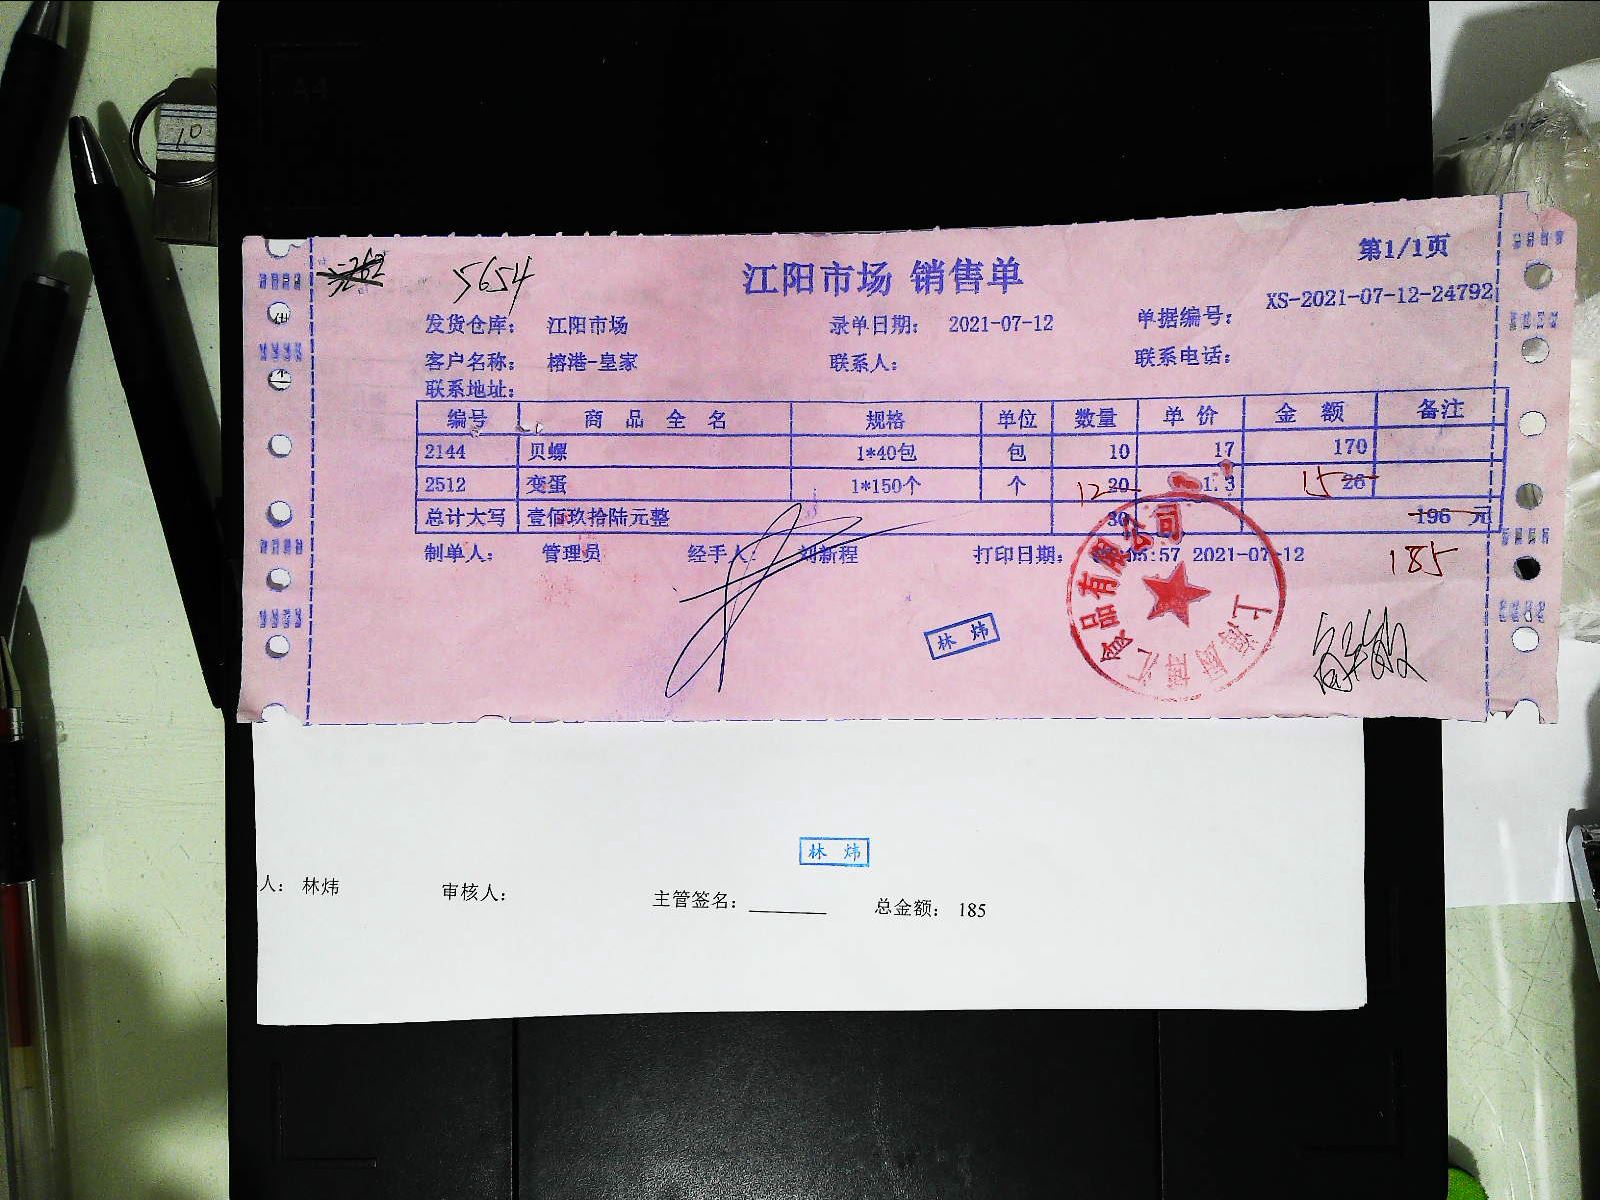 A4
1.0
第1/1页
5654
江阳市场 销售单
XS-2021-07-12-24792
发货仓库： 江阳市场 录单日期： 2021-07-12 单据编号：
客户名称： 榕港-皇家 联系人： 联系电话：
联系地址：
编号 商 品 全 名 规格 单位 数量 单 价 金 额 备注
2144 贝螺 1*40包 包 10 17 170
2512 变蛋 1*150个 个 12 20 1.3 15 26
总计大写 壹佰玖拾陆元整 30 196 元
制单人： 管理员 经手人： 刘新程 打印日期： 05:57 2021-07-12
185
林 炜
食品有限公司
上海
林 炜
人： 林炜 审核人： 主管签名： 总金额： 185